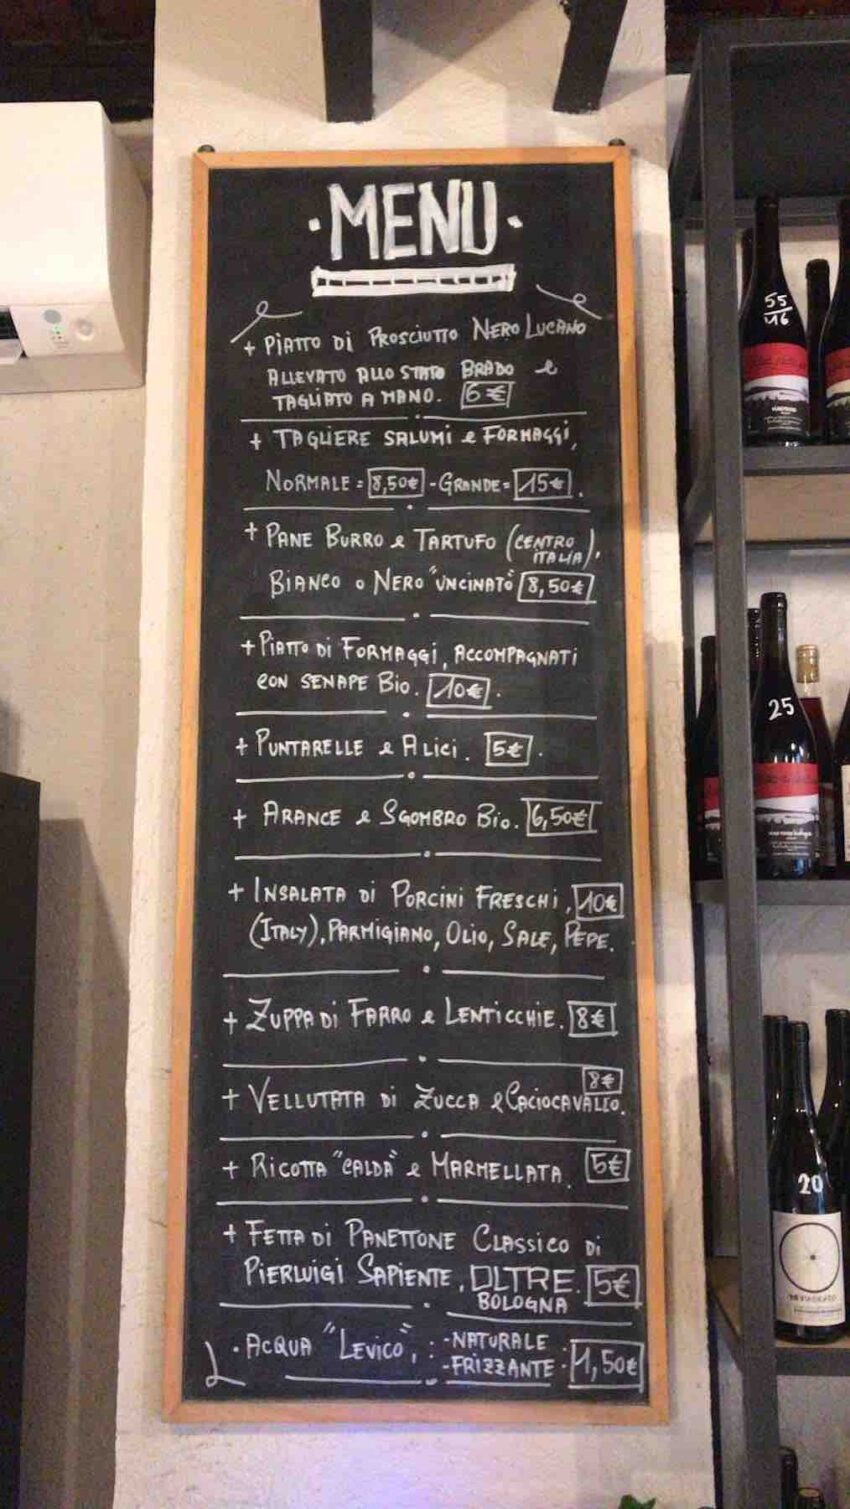 ·MENU·
+ PIATTO DI PROSCIUTTO NERO LUCANO
ALLEVATO ALLO STATO BRADO e
TAGLIATO A MANO. 6€
+ TAGLIERE SALUMI e FORMAGGI,
NORMALE = 8,50€ - GRANDE = 15€.
+ PANE BURRO e TARTUFO (CENTRO ITALIA),
BIANCO O NERO "UNCINATO" 8,50€
+ PIATTO DI FORMAGGI, ACCOMPAGNATI
CON SENAPE BIO. 10€.
+ PUNTARELLE e ALICI. 5€.
+ ARANCE e SGOMBRO BIO. 6,50€
+ INSALATA DI PORCINI FRESCHI, 10€
(ITALY), PARMIGIANO, OLIO, SALE, PEPE.
+ ZUPPA DI FARRO e LENTICCHIE. 8€
8€
+ VELLUTATA DI ZUCCA e CACIOCAVALLO.
+ RICOTTA "CALDA" e MARMELLATA. 5€
+ FETTA DI PANETTONE CLASSICO DI
PIERLUIGI SAPIENTE, OLTRE. 5€
BOLOGNA
· ACQUA "LEVICO", : -NATURALE
-FRIZZANTE · 1,50€
55
16
25
20